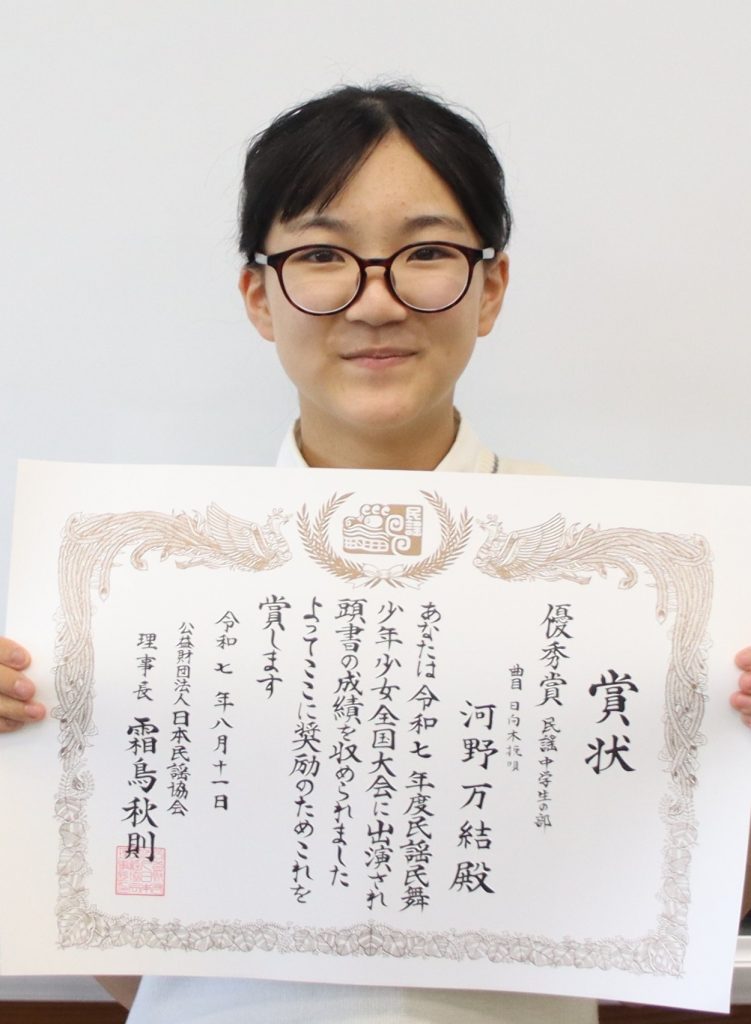 民謡
賞状
優秀賞 民謡中学生の部
曲目 日向木挽唄
河野万結殿
あなたは令和七年度民謡民舞
少年少女全国大会に出演され
頭書の成績を収められました
よってここに奨励のためこれを
賞します
令和七年八月十一日
公益財団法人日本民謡協会
理事長 霜鳥秋則